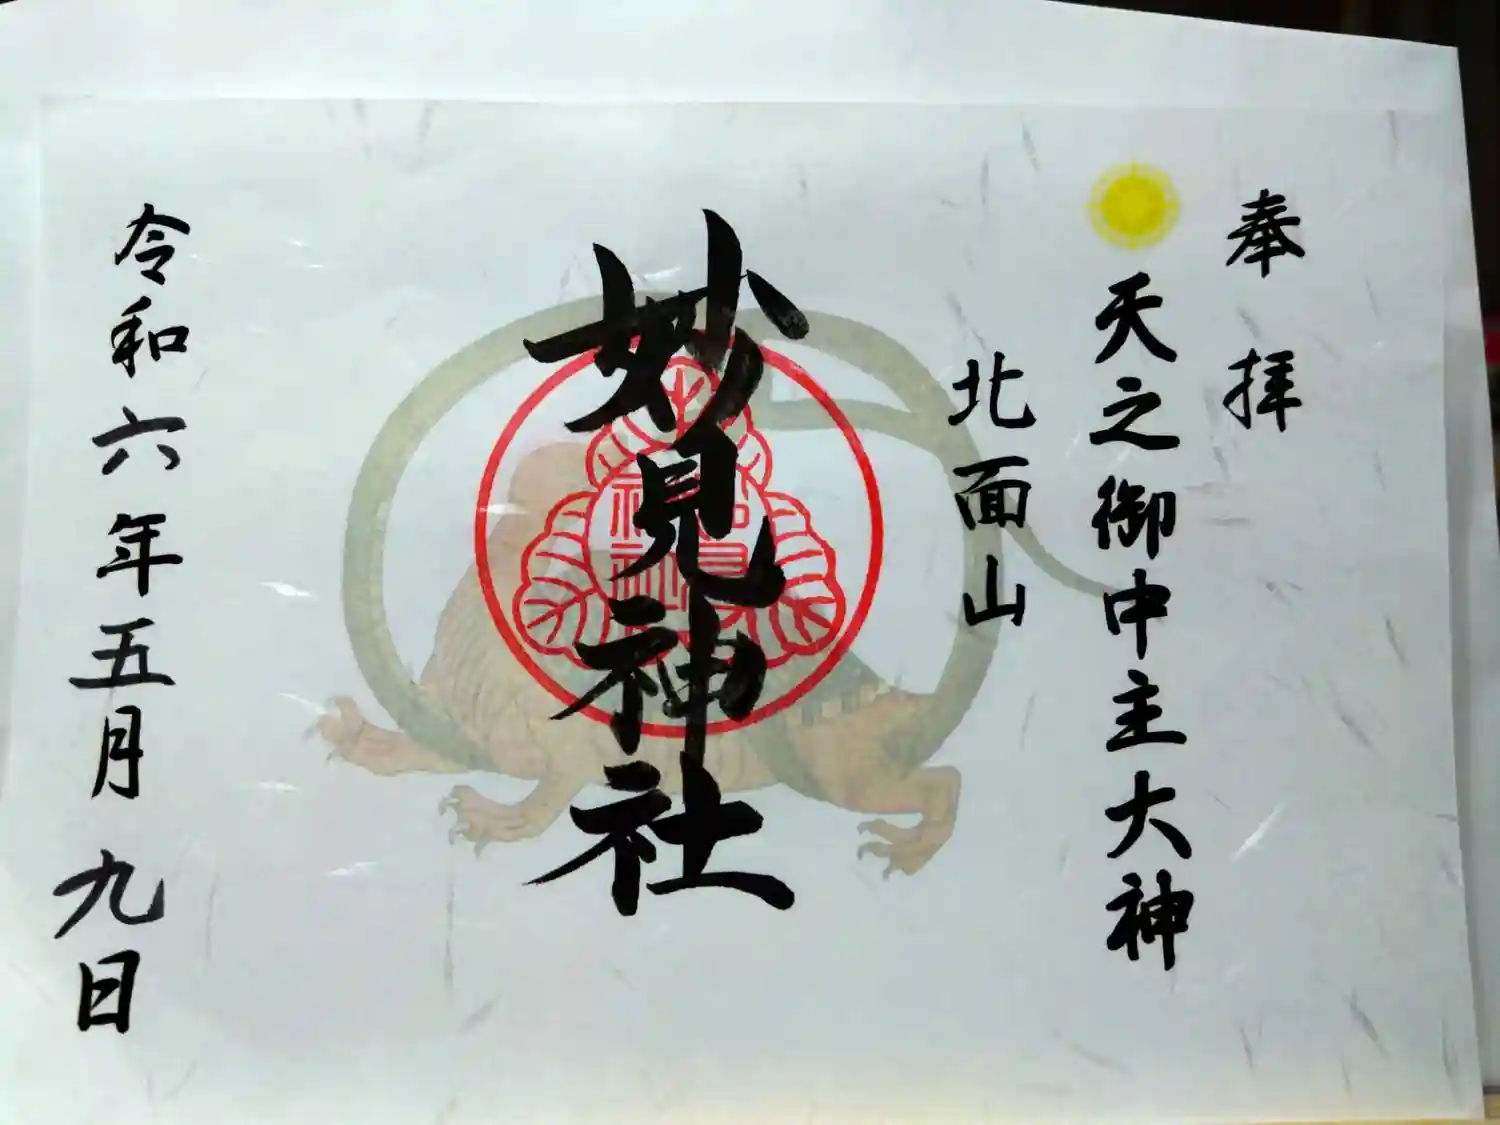 奉拝
天之御中主大神
北面山
妙見神社
令和六年五月九日